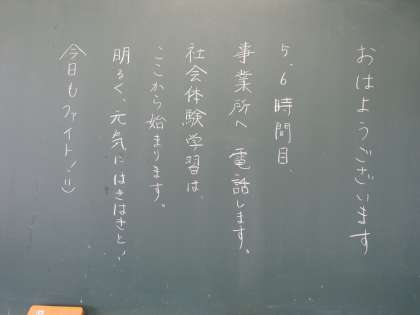 おはようございます
5、6時間目、
事業所へ電話します。
社会体験学習は、
ここから始まります。
明るく、元気にはきはきと!
今日もファイト!!